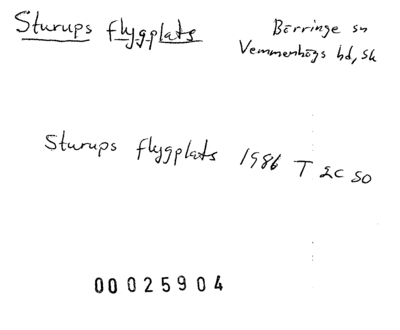 Sturups flygplats
Börringe sn
Vemmenhögs hd, Sk
Sturups flygplats 1986 T 2C SO
00025904